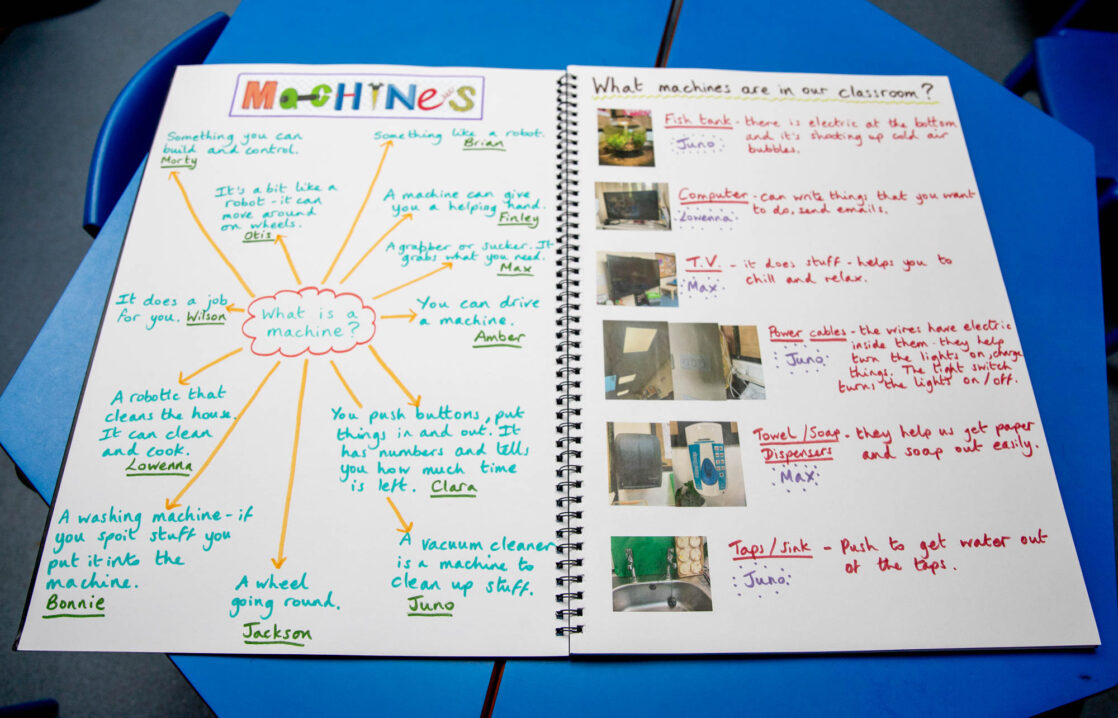 MACHINES
Something you can
build and control.
Morty
Something like a robot.
Brian
It's a bit like a
robot - it can
move around
on wheels.
Otis
A machine can give
you a helping hand.
Finley
A grabber or sucker. It
grabs what you need.
Max
It does a job
for you. Wilson
What is a
machine?
You can drive
a machine.
Amber
A robotic that
cleans the house.
It can clean
and cook.
Lowenna
You push buttons, put
things in and out. It
has numbers and tells
you how much time
is left. Clara
A washing machine - if
you spoil stuff you
put it into the
machine.
Bonnie
A wheel
going round.
Jackson
A vacuum cleaner
is a machine to
clean up stuff.
Juno
What machines are in our classroom?
Fish tank - there is electric at the bottom
and it's shooting up cold air
bubbles.
Juno
Computer - can write things that you want
to do, send emails.
Lowenna
T.V. - it does stuff - helps you to
chill and relax.
Max
Power cables - the wires have electric
inside them - they help
turn the lights on, charge
things. The light switch
turns the lights on/off.
Juno
Towel/Soap - they help us get paper
Dispensers and soap out easily.
Max
Taps/Sink - Push to get water out
of the taps.
Juno